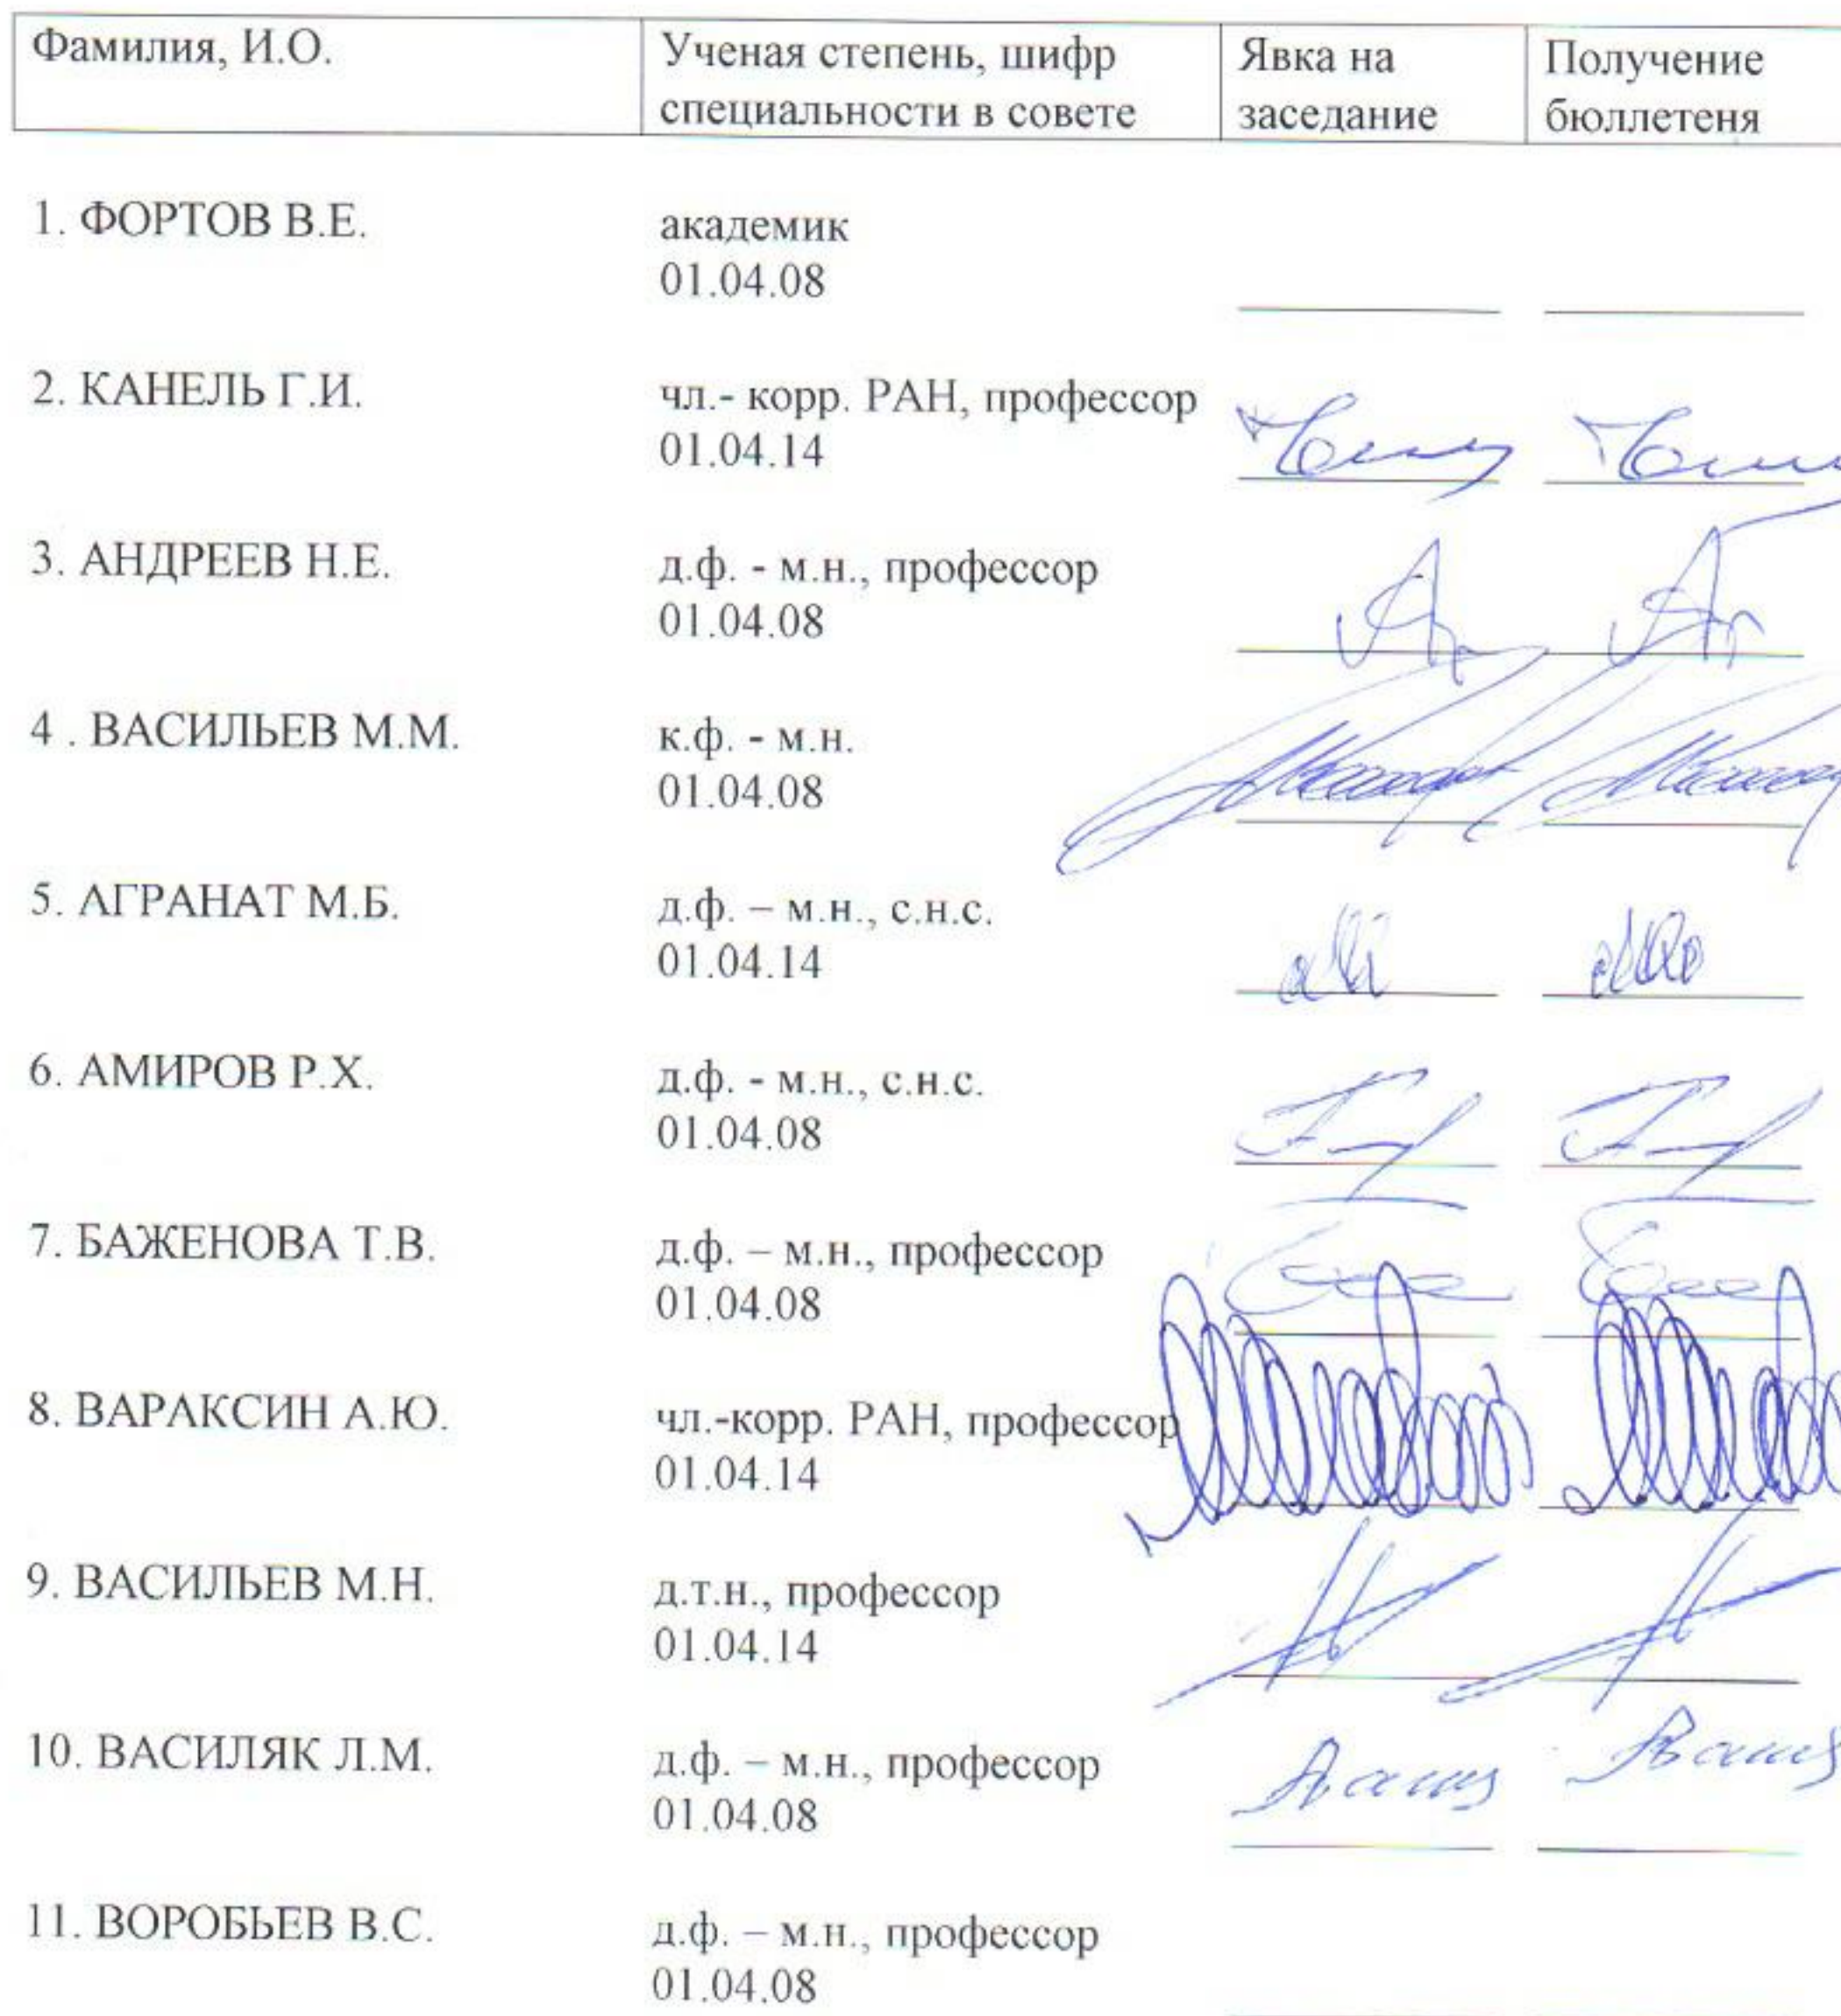 Фамилия, И.О.
Ученая степень, шифр
специальности в совете
Явка на
заседание
Получение
бюллетеня
1. ФОРТОВ В.Е.
академик
01.04.08
2. КАНЕЛЬ Г.И.
чл.- корр. РАН, профессор
01.04.14
3. АНДРЕЕВ Н.Е.
д.ф. - м.н., профессор
01.04.08
4 . ВАСИЛЬЕВ М.М.
к.ф. - м.н.
01.04.08
5. АГРАНАТ М.Б.
д.ф. – м.н., с.н.с.
01.04.14
6. АМИРОВ Р.Х.
д.ф. - м.н., с.н.с.
01.04.08
7. БАЖЕНОВА Т.В.
д.ф. – м.н., профессор
01.04.08
8. ВАРАКСИН А.Ю.
чл.-корр. РАН, профессор
01.04.14
9. ВАСИЛЬЕВ М.Н.
д.т.н., профессор
01.04.14
10. ВАСИЛЯК Л.М.
д.ф. – м.н., профессор
01.04.08
11. ВОРОБЬЕВ В.С.
д.ф. – м.н., профессор
01.04.08